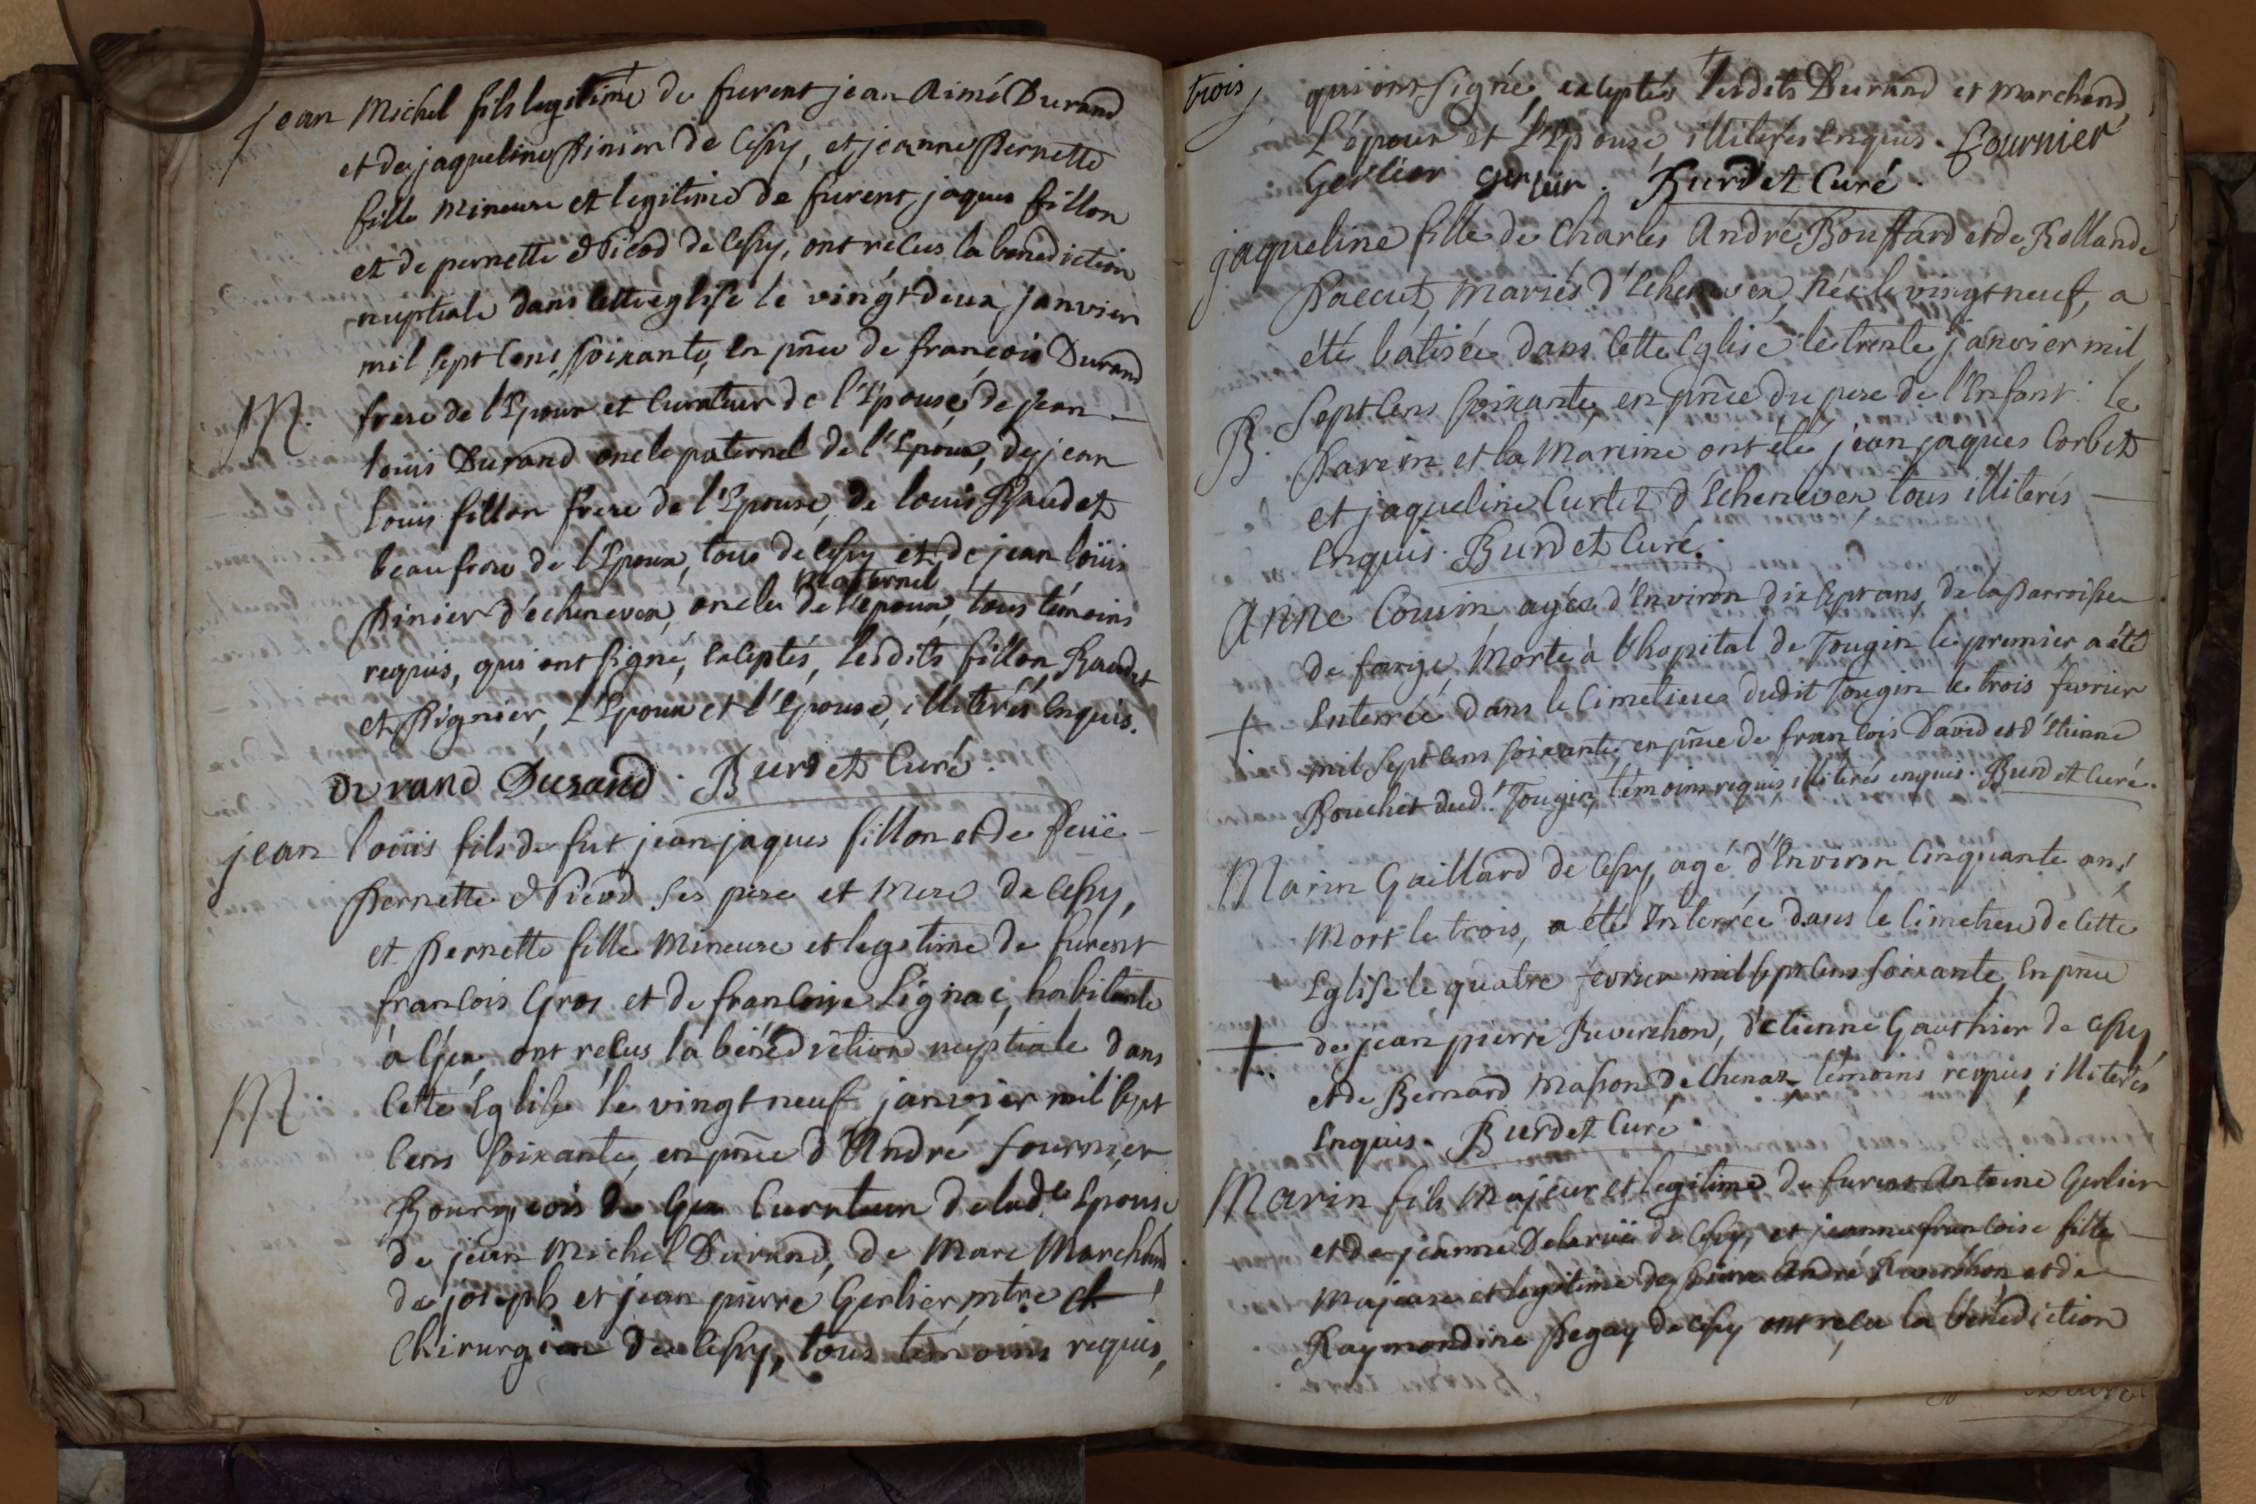 jean Michel fils legitime de furent jean Aimé Durand
et de jaqueline Pinier de Cessy, et jeanne Pernette
fille mineure et legitime de furent jaques fillon
et de pernette Nicod de Cessy, ont recus la benediction
nuptiale dans cette eglise le vingt deux janvier
mil sept cens soixante, en pñce de francois Durand
M. frere de l'Epoux et Curateur de l'Epouse, de jean
louis Durand oncle paternel de l'Epoux, de jean
louis fillon frere de l'Epouse, de louis Baudet
beaufrere de l'Epoux, tous de Cessy et de jean loüis
maternel
Pinier d'echenevex, oncle de l'epoux, tous témoins
requis, qui ont signé, exceptés, lesdits fillon, Baudet
et Pignier, l'Epoux et l'Epouse, illiterés Enquis.
Durand Durand. Burdet Curé.
jean loüis fils de fut jean jaques fillon et de feüe
Pernette Nicod ses pere et mere de Cessy,
et Pernette fille mineure et legitime de furent
francois Gros et de francoise Lignac, habitante
à Gex, ont recus la bénédiction nuptiale dans
M. Cette Eglise le vingt neuf janvier mil sept
cens soixante, en pñce d'André fournier
Bourgeois de Gex Curateur de lad.te Epouse
de jean Michel Durand, de Marc Marchand
de joseph et jean pierre Gerlier, mtre
Chirurgien de Cessy, tous temoins requis,
trois
qui ont signé, exceptés lesdits Durand et Marchand,
L'époux et L'Epouse, illiterés Enquis. fournier
Gerlier Gerlier. Burdet Curé.
jaqueline fille de Charles André Bouffard et de Rollande
Paccut, mariés d'Echenevex, née le vingt neuf, a
été batisée dans cette Eglise le trente janvier mil
Sept Cens soixante, en pñce du pere de l'Enfant. le
B. Parein et la Mareine ont été jean jaques Corbet
et jaqueline Curtet d'Echenevex, tous illiterés
Enquis. Burdet Curé.
Anne Cousin agée d'Environ dix sept ans, de la Parroisse
de farige, Morte à l'hopital de Tougin le premier a été
+. Enterrée dans le Cimetiere dudit Tougin le trois fevrier
mil sept cens soixante, en pñce de francois David et d'Etienne
Bouchet dud.t Tougin, témoins requis, illiterés enquis. Burdet Curé.
Marin Gaillard de Cessy, agé d'Environ Cinquante ans
Mort le trois, a été Enterrée dans le Cimetiere de cette
Eglise le quatre fevrier mil sept cens soixante, en pñce
+. de jean pierre Reverchon, d'etienne Gauthier de Cessy
et de Bernard Masson de Chenaz témoins requis, illiterés
Enquis. Burdet Curé
Marin fils Majeur et legitime de furent Antoine Gerlier
et de jeanne Delarüe de Cessy, et jeanne francoise fille
Majeure et legitime de pierre André Reverchon et de
Raymondine Pegay de Cessy ont recu la bénédiction